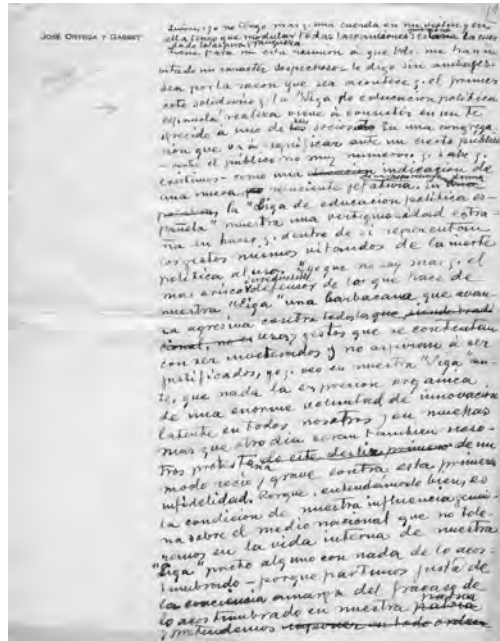 JOSÉ ORTEGA Y GASSET
Señores, yo no tengo mas q. una cuerda en mi violín y en
ella tengo que modular todas las canciones: es la cuer
da de la áspera franqueza
Tiene para mi esta reunion á que Vds. me han in
vitado un caracter sospechoso: lo digo sin ambages.
Sea por la razon que sea acontece q. el primer
acto solidario q. la "Liga de educacion politica
española" realiza viene á consistir en un té
ofrecido á uno de sus socios. En una congrega
cion que va á significar ante un cierto publico
—ante el público no muy numeroso q. sabe q.
existimos— como una indicacion de
una nueva naciente jefatura. En
la "Liga de educacion politica es-
pañola" muestra una vertiginosidad extra
ña en hacer q. dentro de si representan
los gestos menos vitandos de la inerte
politica al uso. Yo que no soy mas q. el
mas arisco defensor de los que hace de
nuestra "Liga" una barbacana que avan
za agresiva contra todos los que
usos, gestos que se contentan
con ser inveterados y no aspiran á ser
justificados, yo q. veo en nuestra "Liga" an-
tes que nada la expresion organica
de una enorme voluntad de innovacion
latente en todos nosotros, en muchos
mas que otro dia seran tambien noso-
tros de un
modo recio y grave contra esta primera
infidelidad. Porque, entendámoslo bien, es
la condicion de nuestra influencia genui-
na sobre el medio nacional que no tole-
remos en la vida interna de nuestra
"Liga" pacto alguno con nada de lo acos-
tumbrado —porque partimos justo de
la conciencia amarga del fracaso de
lo acostumbrado en nuestra patria
y pretendemos imponer en todo orden